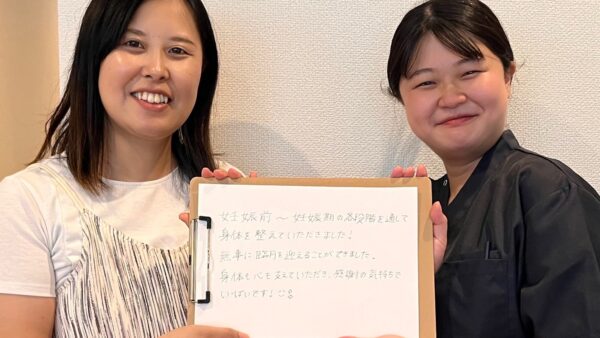 妊娠前〜妊娠期の各段階を通して
身体を整えていただきました!
無事に臨月を迎えることができました。
身体も心も支えていただき、感謝の気持ちで
いっぱいです!